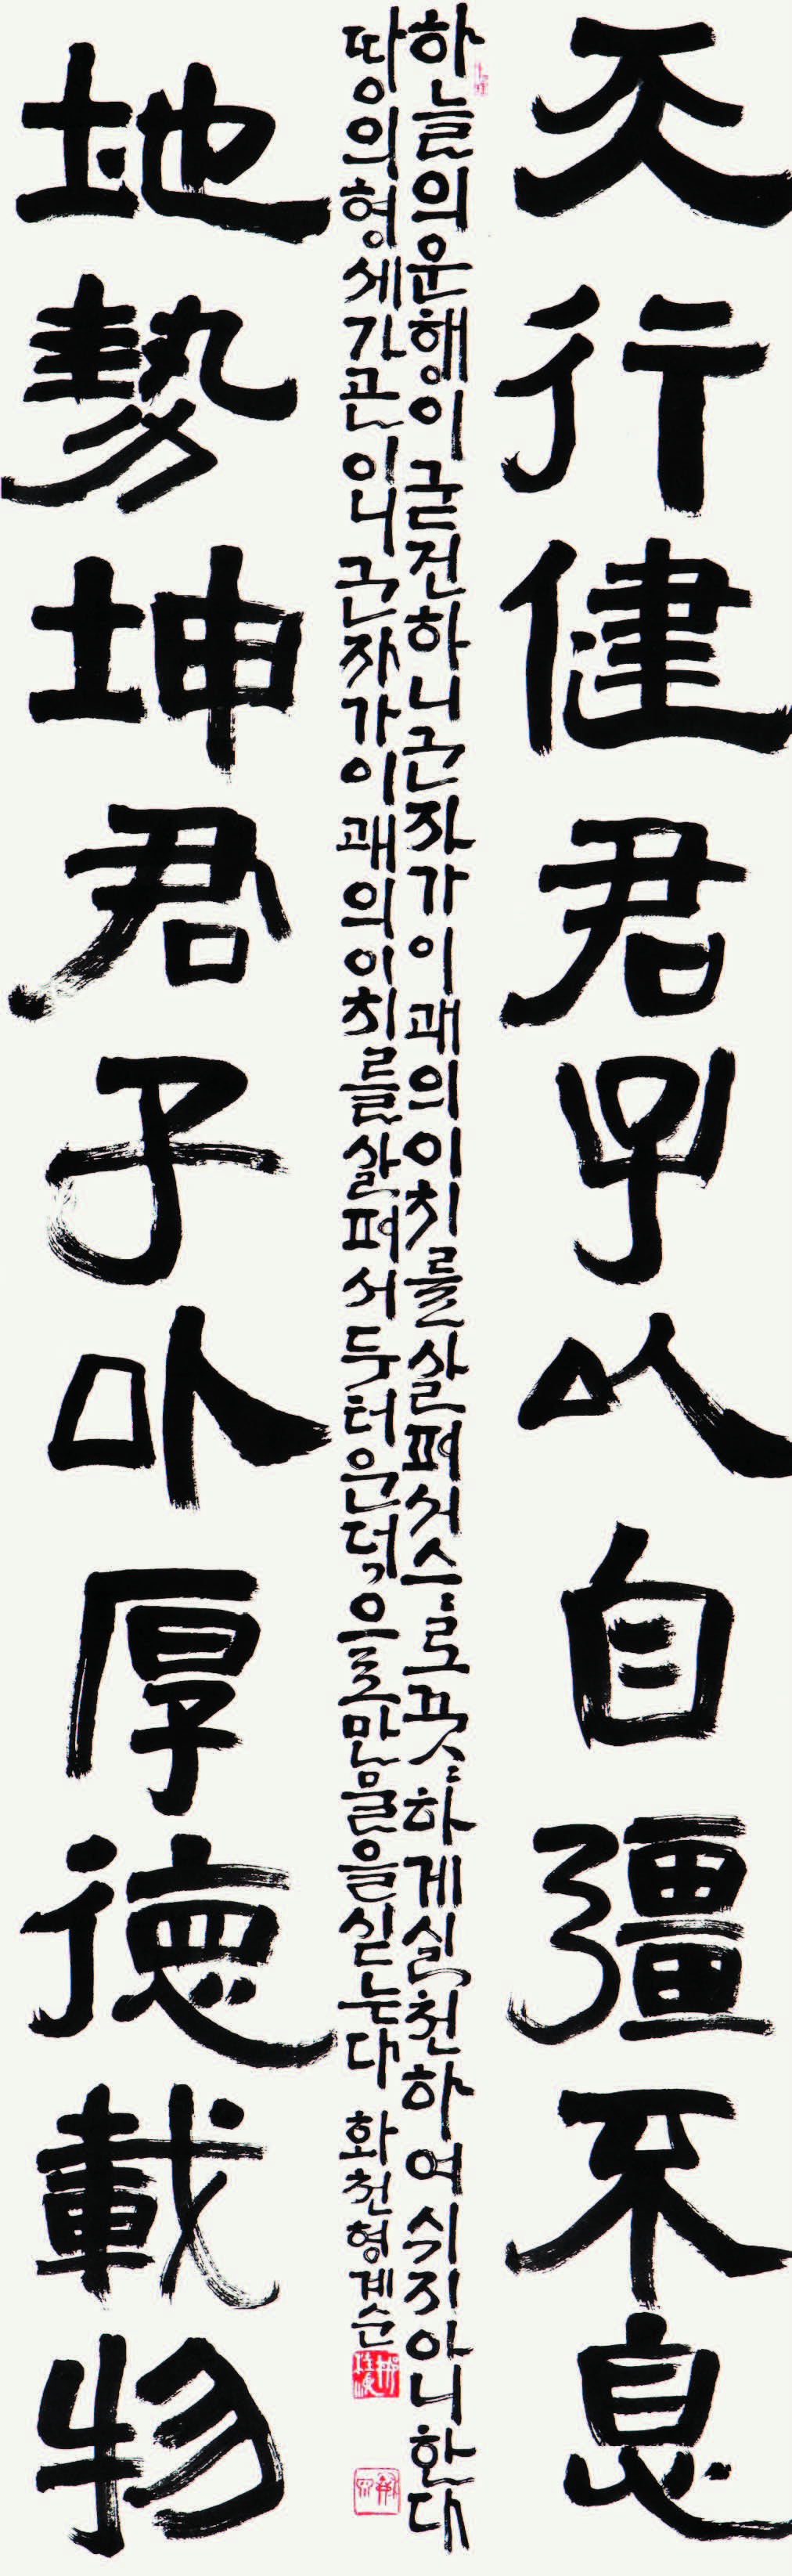 天行健君子以自彊不息
하늘의운행이굳건하니군자가이괘의이치를살펴서스스로꿋꿋하게실천하여쉬지아니한다
땅의형세가곤이니군자가이괘의이치를살펴서두터운덕으로만물을싣는다 화천형계순
地勢坤君子以厚德載物